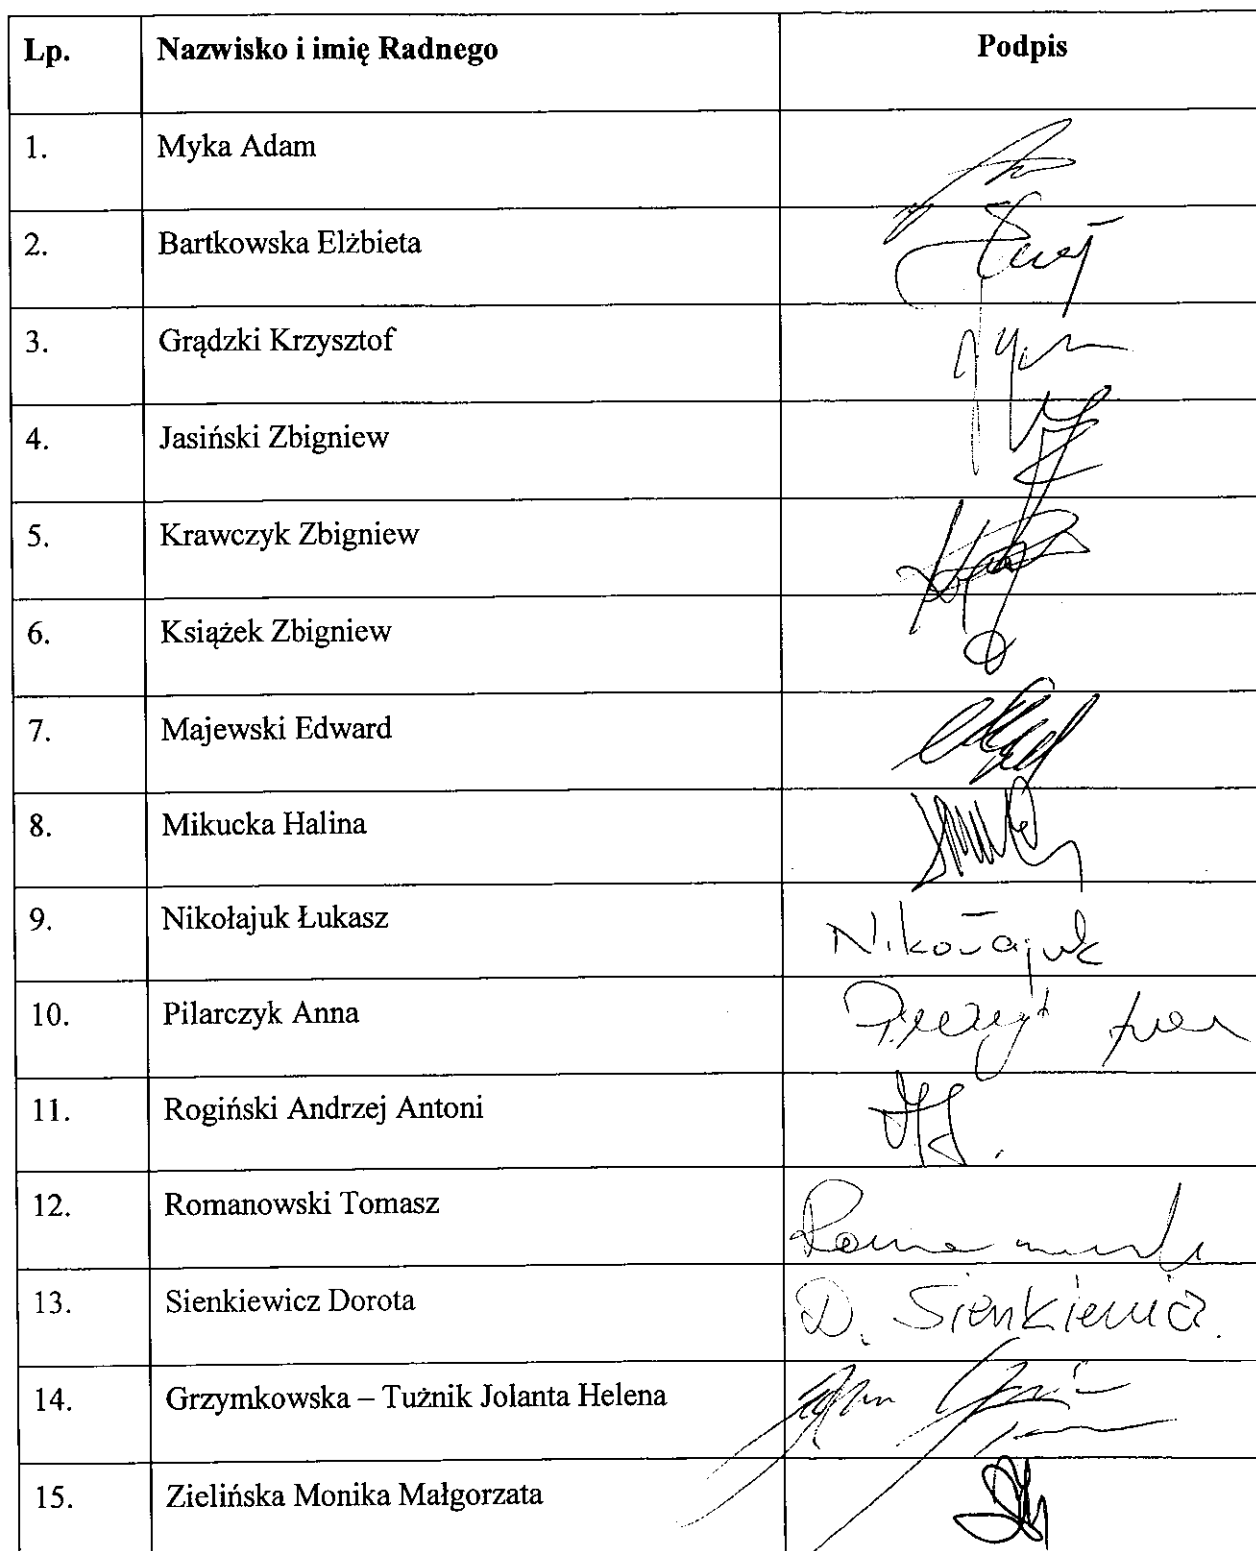 Lp. Nazwisko i imię Radnego Podpis
1. Myka Adam
2. Bartkowska Elżbieta
3. Grądzki Krzysztof
4. Jasiński Zbigniew
5. Krawczyk Zbigniew
6. Książek Zbigniew
7. Majewski Edward
8. Mikucka Halina
9. Nikołajuk Łukasz Nikołajuk
10. Pilarczyk Anna
11. Rogiński Andrzej Antoni
12. Romanowski Tomasz
13. Sienkiewicz Dorota D. Sienkiewicz
14. Grzymkowska – Tużnik Jolanta Helena
15. Zielińska Monika Małgorzata